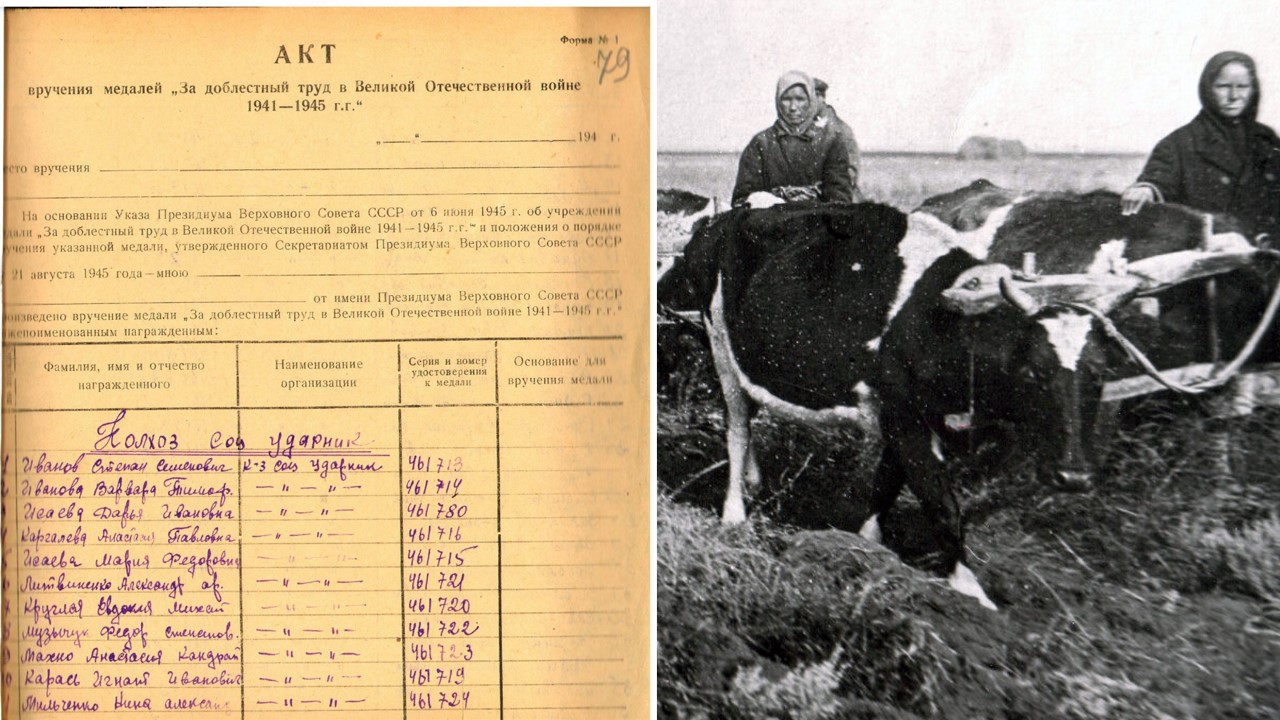 Форма № 1
79
АКТ
вручения медалей „За доблестный труд в Великой Отечественной войне
1941—1945 г.г.“
„—“ 194 г.
сто вручения
На основании Указа Президиума Верховного Совета СССР от 6 июня 1945 г. об учреждении
дали „За доблестный труд в Великой Отечественной войне 1941—1945 г.г.“ и положения о порядке
учения указанной медали, утвержденного Секретариатом Президиума Верховного Совета СССР
21 августа 1945 года—мною
от имени Президиума Верховного Совета СССР
оизведено вручение медали „За доблестный труд в Великой Отечественной войне 1941—1945 г.г.“
жепоименованным награжденным:
Фамилия, имя и отчество награжденного Наименование организации Серия и номер удостоверения к медали Основание для вручения медали
Колхоз соц ударник
Иванов Степан Семенович К-з соц ударник 461713
Иванова Варвара Тимоф. — " — " — 461714
Исаева Дарья Ивановна — " — " — 461780
Каргалева Анастасия Павловна — " — " — 461716
Исаева Мария Федоровна — " — " — 461715
Литвиненко Александр — " — " — 461721
Круглая Евдокия Михай — " — " — 461720
Музычук Федор Степанов. — " — " — 461722
Махно Анастасия Кондрат — " — " — 461723
Карась Игнат Иванович — " — " — 461719
Мильченко Нина Алексан — " — " — 461724